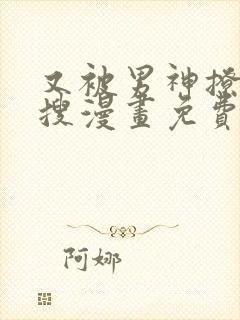 又被男神撩
搜漫畫免費
阿娜